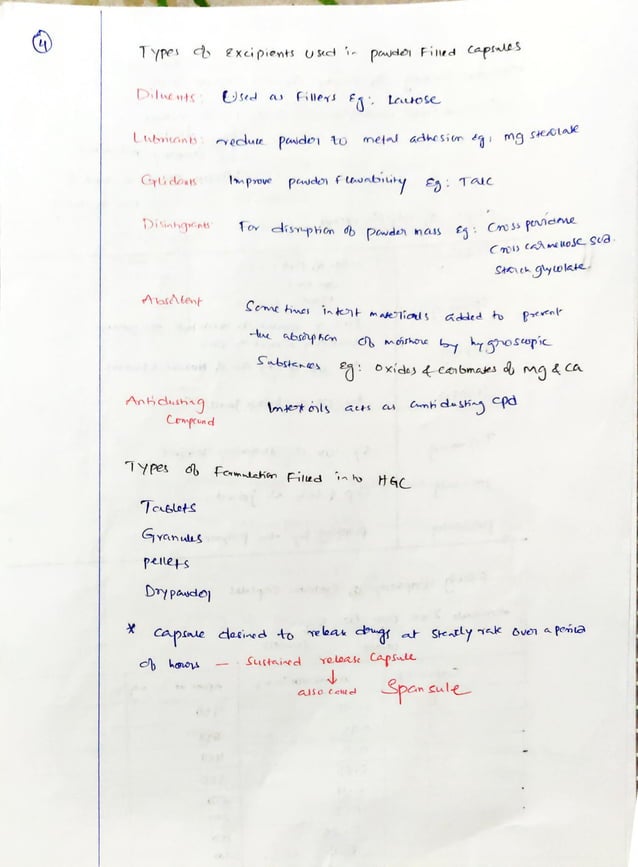 4
Types of Excipients used in powder Filled Capsules
Diluents: Used as Fillers Eg: Lactose
Lubricants: reduce powder to metal adhesion eg: mg stearate
Glidants: Improve powder flowability Eg: Talc
Disintigrants For disruption of powder mass Eg: Cross povidone
Cross carmellose sod.
Starch glycolate.
Absorbent Sometimes intert materials added to prevent
the absorption of moisture by hygroscopic
Substances Eg: Oxides & carbonates of Mg & Ca
Antidusting Intert oils acts as antidusting cpd
Compound
Types of Formulation Filled into HGC
Tablets
Granules
pellets
Dry powder
* Capsule desined to release drugs at steatly rate over a period
of hours – Sustained release Capsule
↓
also called Spansule